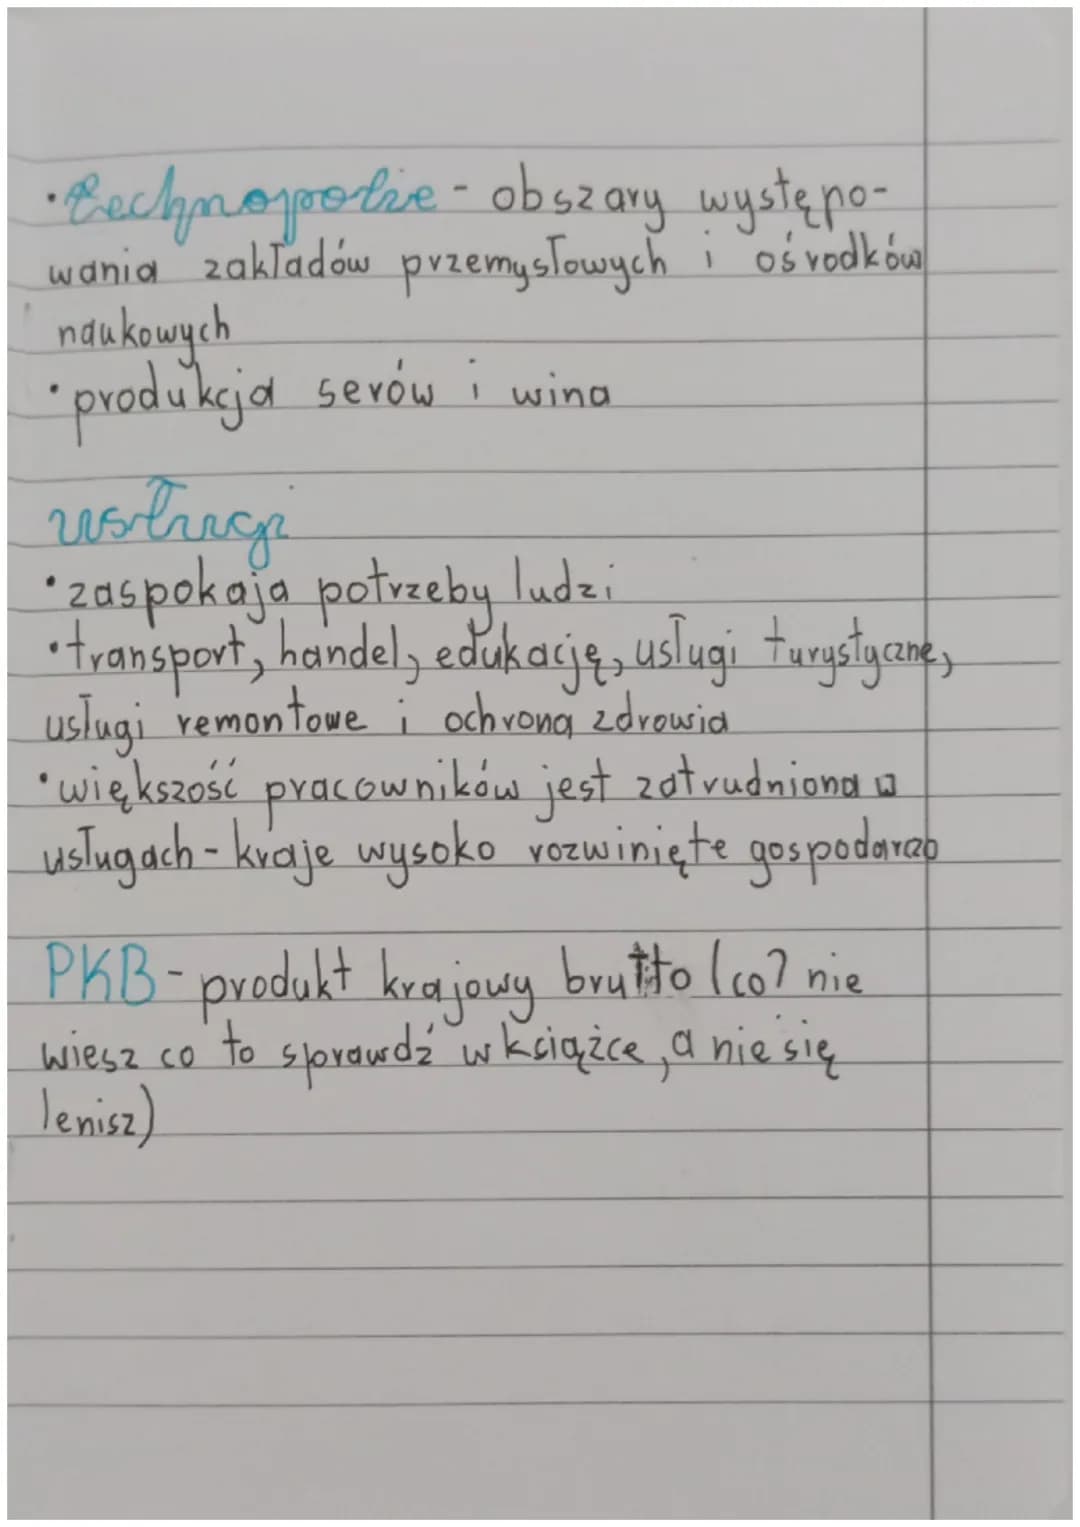 • technopolie - obszary występo-
wania zakładów przemysłowych i ośrodków
naukowych
• produkcja serów i wina
usługi
• zaspokaja potrzeby ludzi
• transport, handel, edukację, usługi turystyczne,
usługi remontowe i ochrona zdrowia
• większość pracowników jest zatrudniona w
usługach - kraje wysoko rozwinięte gospodarczo
PKB - produkt krajowy brutto (co? nie
wiesz co to sprawdź w książce, a nie się
lenisz)